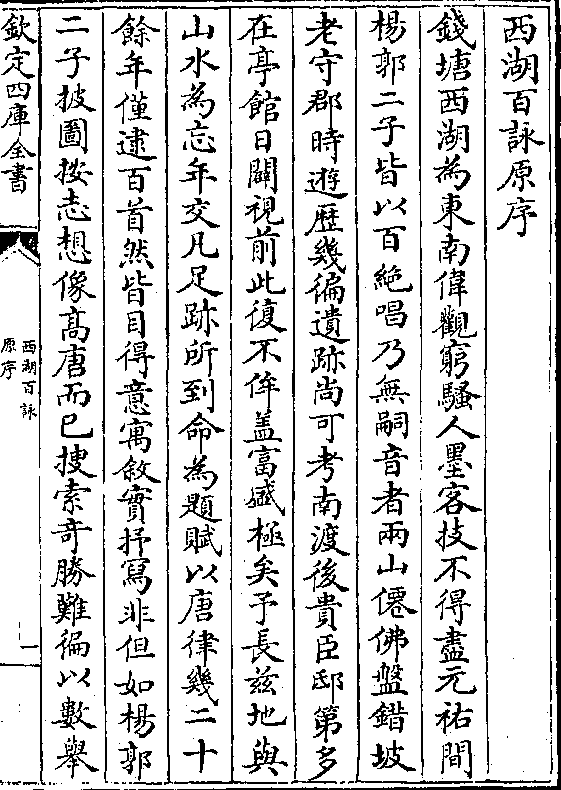 西湖百詠原序
錢塘西湖為東南偉觀窮騷人墨客技不得盡元祐間
楊郭二子皆以百絶唱乃無嗣音者兩山僊佛盤錯坡
老守郡時遊歴幾徧遺跡尚可考南渡後貴臣邸第多
在亭館日闢視前此復不侔盖富盛極矣予長兹地與
山水為忘年交凡足跡所到命為題賦以唐律幾二十
餘年僅逮百首然皆目得意寓敘實抒寫非但如楊郭
二子披圖按志想像髙唐而已搜索竒勝難徧以數舉
欽定四庫全書
西湖百詠
原序
一